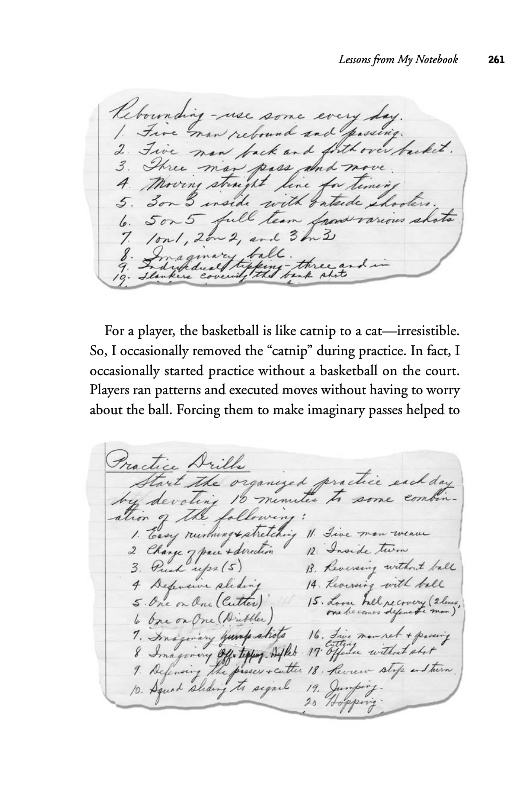 Lessons from My Notebook 261
Rebounding - use some every day.
1. Five man rebound and passing.
2. Five man back and forth over basket.
3. Three man pass and move.
4 Moving straight line for timing
5. 3 on 3 inside with outside shooters.
6. 5 on 5 full team from various shots
7. 1 on 1, 2 on 2, and 3 on 3
8. Imaginary ball.
9. Individual tipping - three and in
10. Flankers covering the back shot
For a player, the basketball is like catnip to a cat—irresistible.
So, I occasionally removed the “catnip” during practice. In fact, I
occasionally started practice without a basketball on the court.
Players ran patterns and executed moves without having to worry
about the ball. Forcing them to make imaginary passes helped to
Practice Drills
Start the organized practice each day
by devoting 10 minutes to some combin-
ation of the following:
1. Easy running + stretching
2 Change of pace + direction
3. Push ups (5)
4 Defensive sliding
5. One on One (Cutter)
6 One on One (Dribbler)
7. Imaginary jump shots
8 Imaginary tipping
9. Defensing the passer + cutter
10. Squad sliding to signal
11. Five man weave
12. Inside turn
13. Reversing without ball
14. Reversing with ball
15. Loose ball recovery (2 lines,
one becomes defensive man)
16. Five man reb + passing
17. Cutting Offense without shot
18. Review stop and turn
19. Jumping.
20 Hopping.